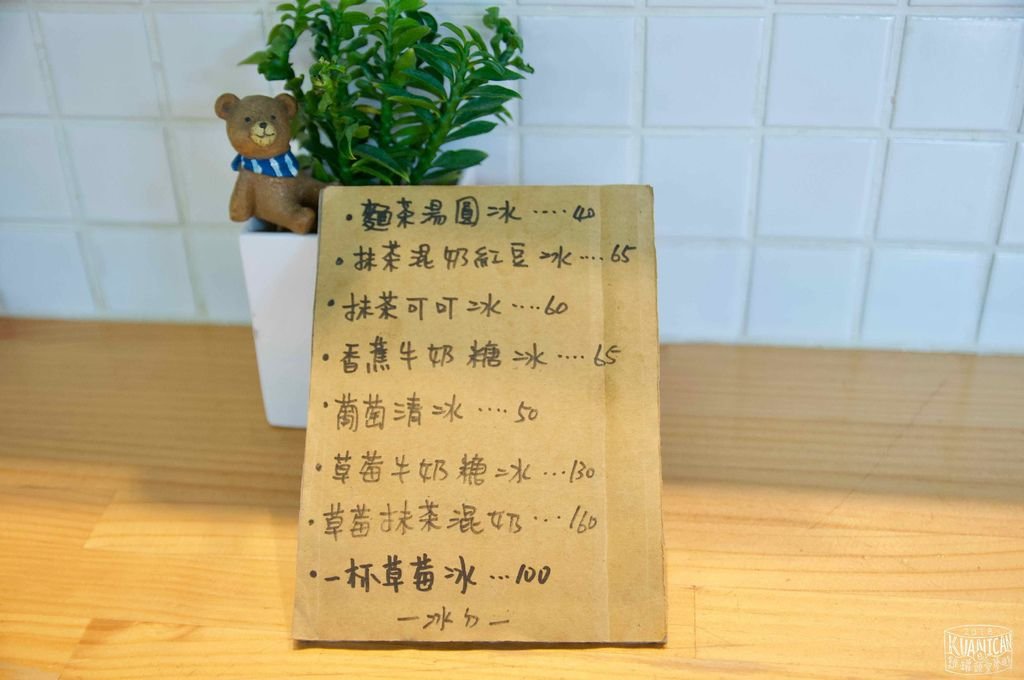 •麵茶湯圓冰....40
•抹茶混奶紅豆冰....65
•抹茶可可冰....60
•香蕉牛奶糖冰....65
•葡萄清冰....50
•草莓牛奶糖冰...130
•草莓抹茶混奶...160
•一杯草莓冰...100
—冰ㄉ—
2018
KUANICAN